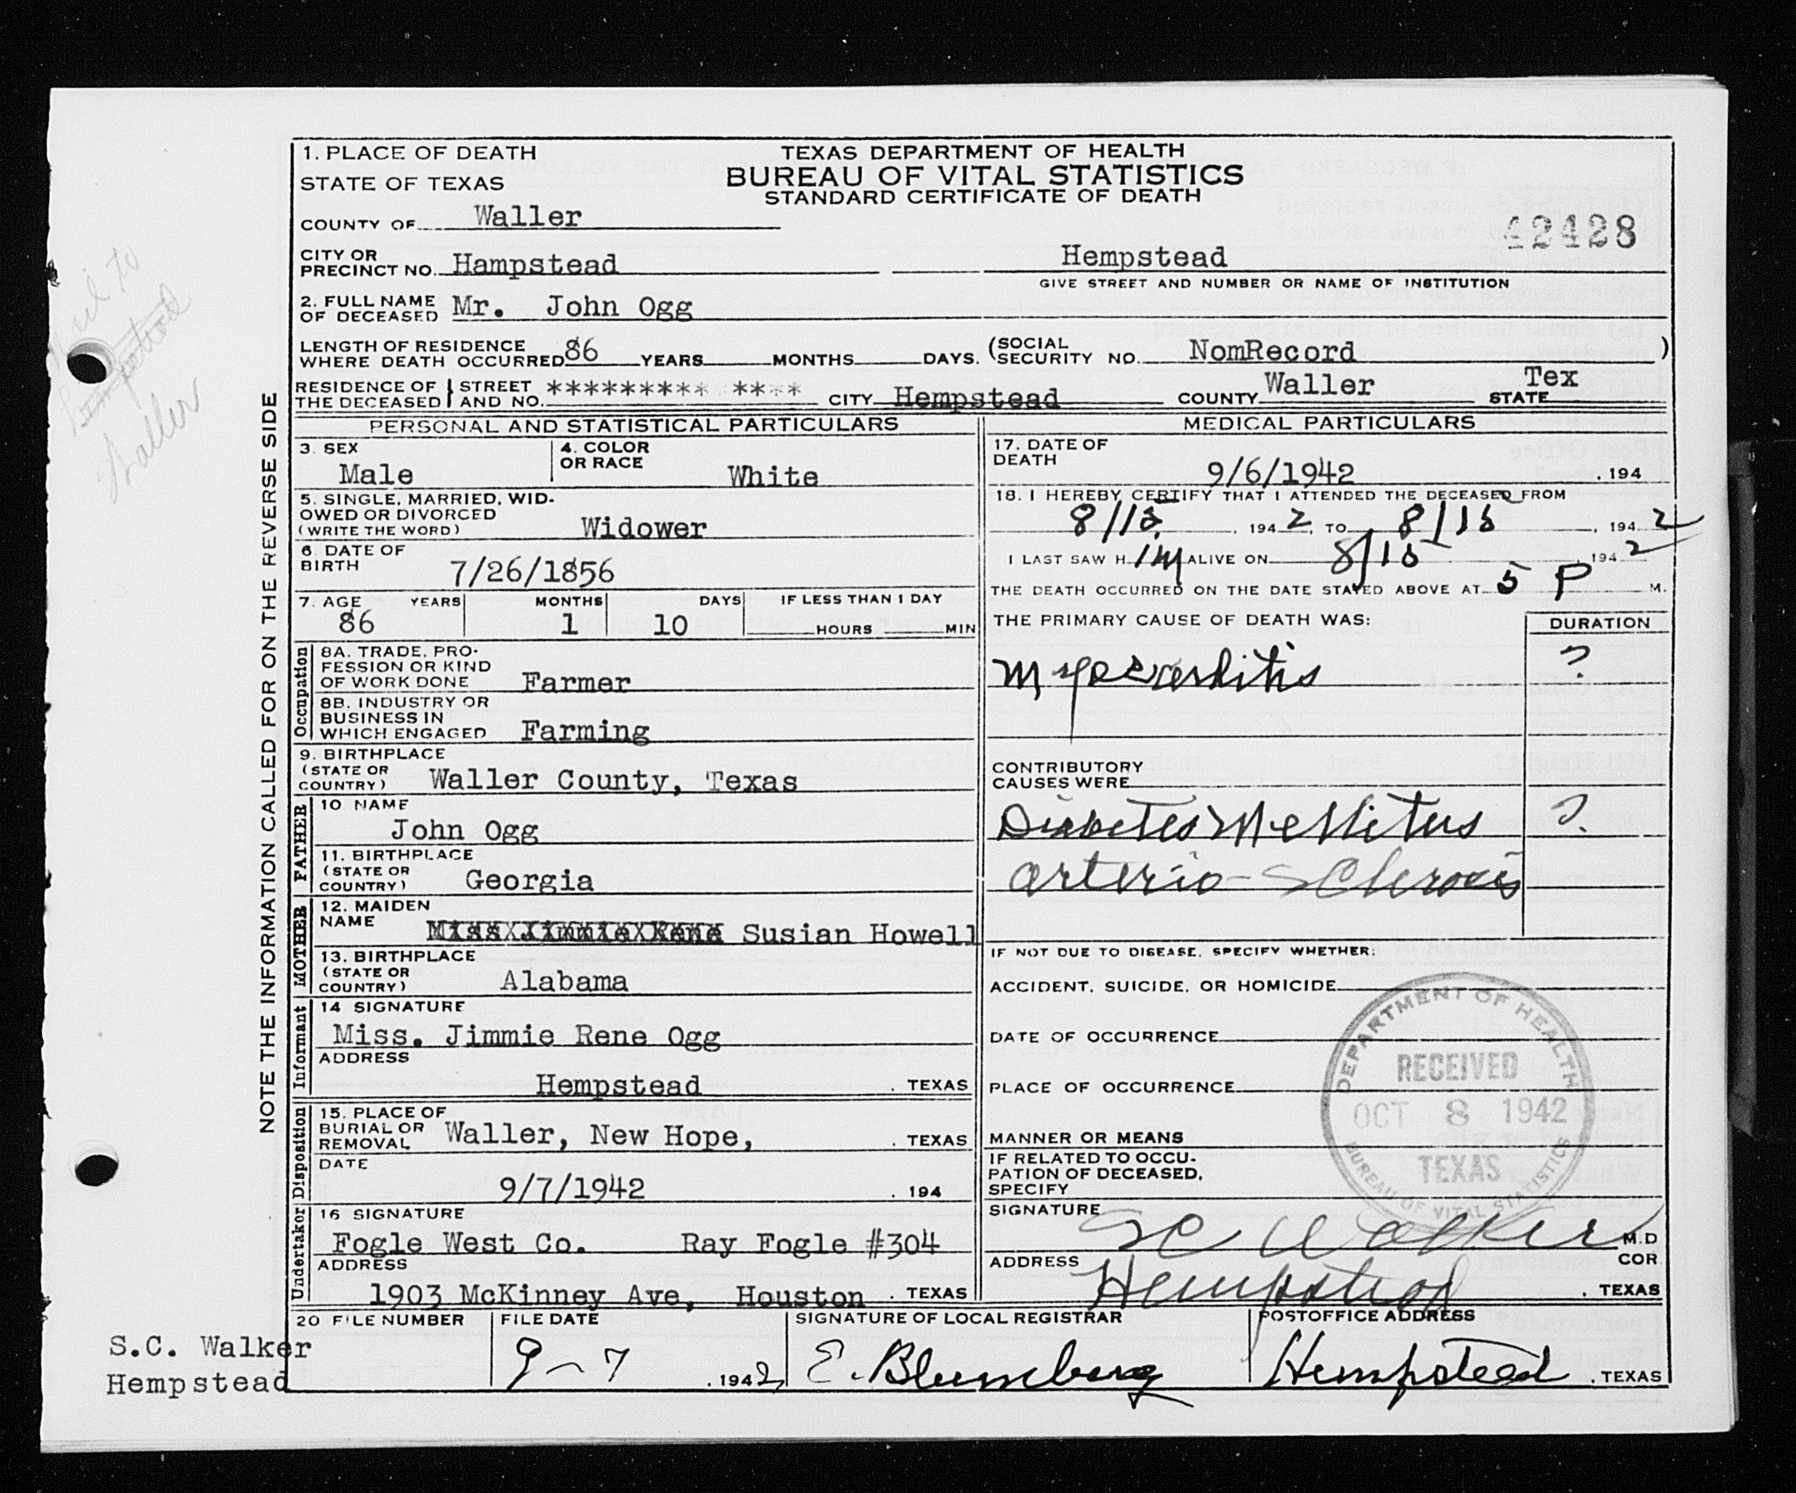 1. PLACE OF DEATH
STATE OF TEXAS
COUNTY OF Waller
TEXAS DEPARTMENT OF HEALTH
BUREAU OF VITAL STATISTICS
STANDARD CERTIFICATE OF DEATH
42428
CITY OR
PRECINCT NO. Hampstead
Hempstead
GIVE STREET AND NUMBER OR NAME OF INSTITUTION
2. FULL NAME
OF DECEASED Mr. John Ogg
LENGTH OF RESIDENCE
WHERE DEATH OCCURRED 86 YEARS MONTHS DAYS. (SOCIAL
SECURITY NO. NomRecord )
RESIDENCE OF
THE DECEASED STREET
AND NO. ********* **** CITY Hempstead COUNTY Waller STATE Tex
PERSONAL AND STATISTICAL PARTICULARS
3. SEX
Male
4. COLOR
OR RACE White
5. SINGLE, MARRIED, WID-
OWED OR DIVORCED
(WRITE THE WORD) Widower
6 DATE OF
BIRTH 7/26/1856
7. AGE YEARS MONTHS DAYS IF LESS THAN 1 DAY
86 1 10 HOURS MIN
Occupation
8A. TRADE, PRO-
FESSION OR KIND
OF WORK DONE Farmer
8B. INDUSTRY OR
BUSINESS IN
WHICH ENGAGED Farming
9. BIRTHPLACE
(STATE OR
COUNTRY) Waller County, Texas
FATHER
10 NAME
John Ogg
11. BIRTHPLACE
(STATE OR
COUNTRY) Georgia
MOTHER
12. MAIDEN
NAME Miss Jimmie Rene Susian Howell
13. BIRTHPLACE
(STATE OR
COUNTRY) Alabama
Informant
14 SIGNATURE
Miss. Jimmie Rene Ogg
ADDRESS
Hempstead . TEXAS
Disposition
15. PLACE OF
BURIAL OR
REMOVAL Waller, New Hope, . TEXAS
DATE
9/7/1942 . 194
Undertaker
16 SIGNATURE
Fogle West Co. Ray Fogle #304
ADDRESS
1903 McKinney Ave, Houston . TEXAS
MEDICAL PARTICULARS
17. DATE OF
DEATH 9/6/1942 . 194
18. I HEREBY CERTIFY THAT I ATTENDED THE DECEASED FROM
8/15, 1942, TO 8/15, 1942
I LAST SAW H im ALIVE ON 8/15, 1942
THE DEATH OCCURRED ON THE DATE STATED ABOVE AT 5 P M.
THE PRIMARY CAUSE OF DEATH WAS: DURATION
Myocarditis ?
CONTRIBUTORY
CAUSES WERE
Diabetes Mellitus ?
arterio-sclerosis
IF NOT DUE TO DISEASE, SPECIFY WHETHER:
ACCIDENT, SUICIDE, OR HOMICIDE
DATE OF OCCURRENCE
PLACE OF OCCURRENCE
MANNER OR MEANS
IF RELATED TO OCCU-
PATION OF DECEASED,
SPECIFY
DEPARTMENT OF HEALTH
RECEIVED
OCT 8 1942
TEXAS
BUREAU OF VITAL STATISTICS
SIGNATURE SC Walker M.D
COR
ADDRESS Hempstead . TEXAS
20 FILE NUMBER
FILE DATE
9-7 . 1942
SIGNATURE OF LOCAL REGISTRAR
E. Blumberg
POSTOFFICE ADDRESS
Hempstead . TEXAS
S.C. Walker
Hempstead
NOTE THE INFORMATION CALLED FOR ON THE REVERSE SIDE
to
Hempstead
Waller